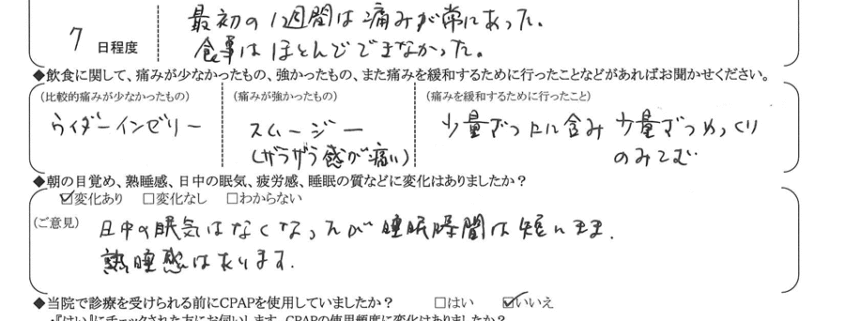 最初の1週間は痛みが常にあった。
7 日程度 食事はほとんどできなかった。
◆飲食に関して、痛みが少なかったもの、強かったもの、また痛みを緩和するために行ったことなどがあればお聞かせください。
(比較的痛みが少なかったもの) (痛みが強かったもの) (痛みを緩和するために行ったこと)
ウイダーインゼリー スムージー 少量ずつ口に含み 少量ずつゆっくり
(ザラザラ感が痛い) のみこむ
◆朝の目覚め、熟睡感、日中の眠気、疲労感、睡眠の質などに変化はありましたか?
☑変化あり □変化なし □わからない
(ご意見) 日中の眠気はなくなったが睡眠時間は短いまま.
熟睡感はあります.
◆当院で診療を受けられる前にCPAPを使用していましたか? □はい ☑いいえ
・『はい』にチェックされた方にお伺いします。CPAPの使用頻度に変化はありましたか?